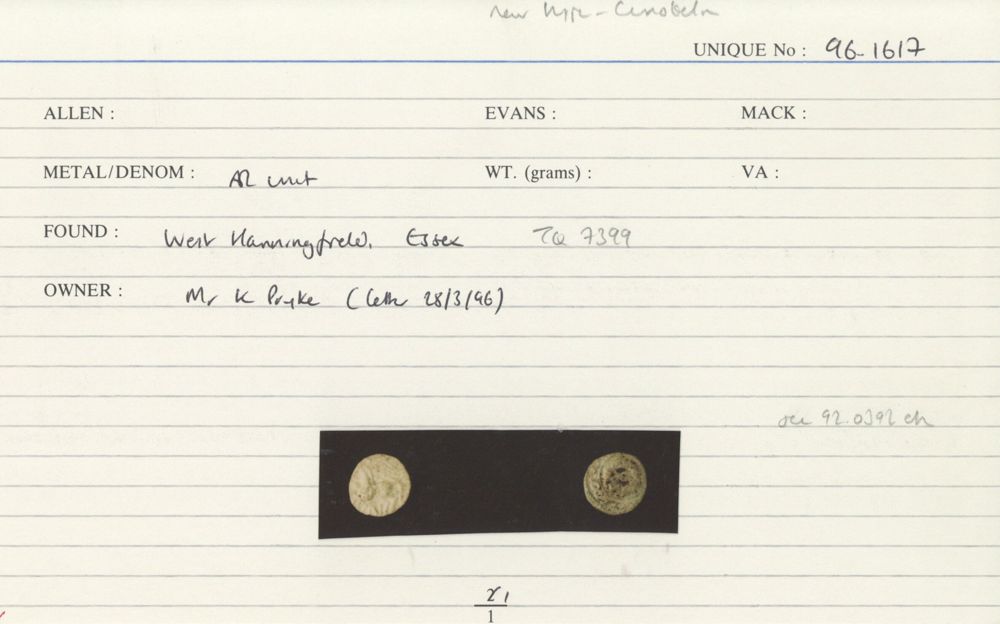 new type - Cunobelin
UNIQUE No : 96-1617
ALLEN : EVANS : MACK :
METAL/DENOM : AR unit WT. (grams) : VA :
FOUND : West Hanningfield, Essex TQ 7399
OWNER : Mr K Pryke (letter 28/3/96)
see 92.0392 etc
1